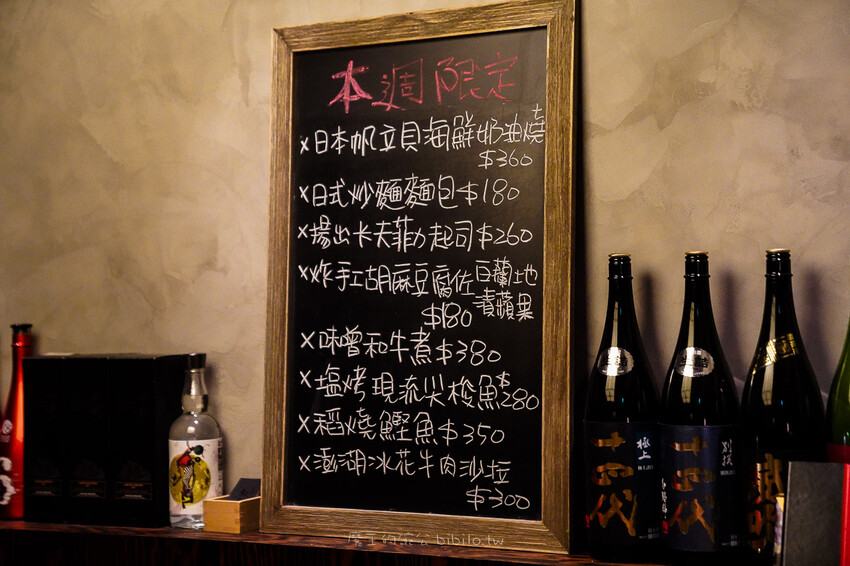 本週限定
×日本帆立貝海鮮奶油燒
$360
×日式炒麵麵包$180
×揚出卡夫菲力起司$260
×炸手工胡麻豆腐佐白蘭地
漬蘋果
$180
×味噌和牛煮$380
×塩烤現流尖梭魚$280
×稻燒鰹魚$350
×澎湖冰花牛肉沙拉
$300
極上
十四代
別撰
十四代
魔王的碗公 bibilo.tw